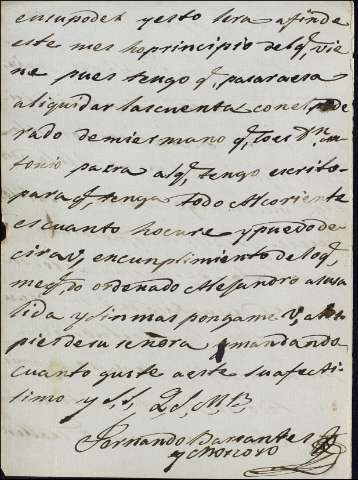 ensupoder yesto sera afinde
este mes hoprincipio delq, vie
ne pues tengo q, pasaraesa
aliquidar lascuenta conelpode
rado demiesmano q, loes Dn, An
tonio parra alq, tengo escrito
paraq, tenga todo Alcoriente
escuanto hocure ypuedode
cira V, encunplimiento deloq,
meq,do ordenado Alejandro asusa
lida ysinmas pongame V, Alos
piesdesu señora ymandando
cuanto guste aeste suafecti
simo y S,S, Q,S,M,B,
Fernando Barrantes
y Moscoso